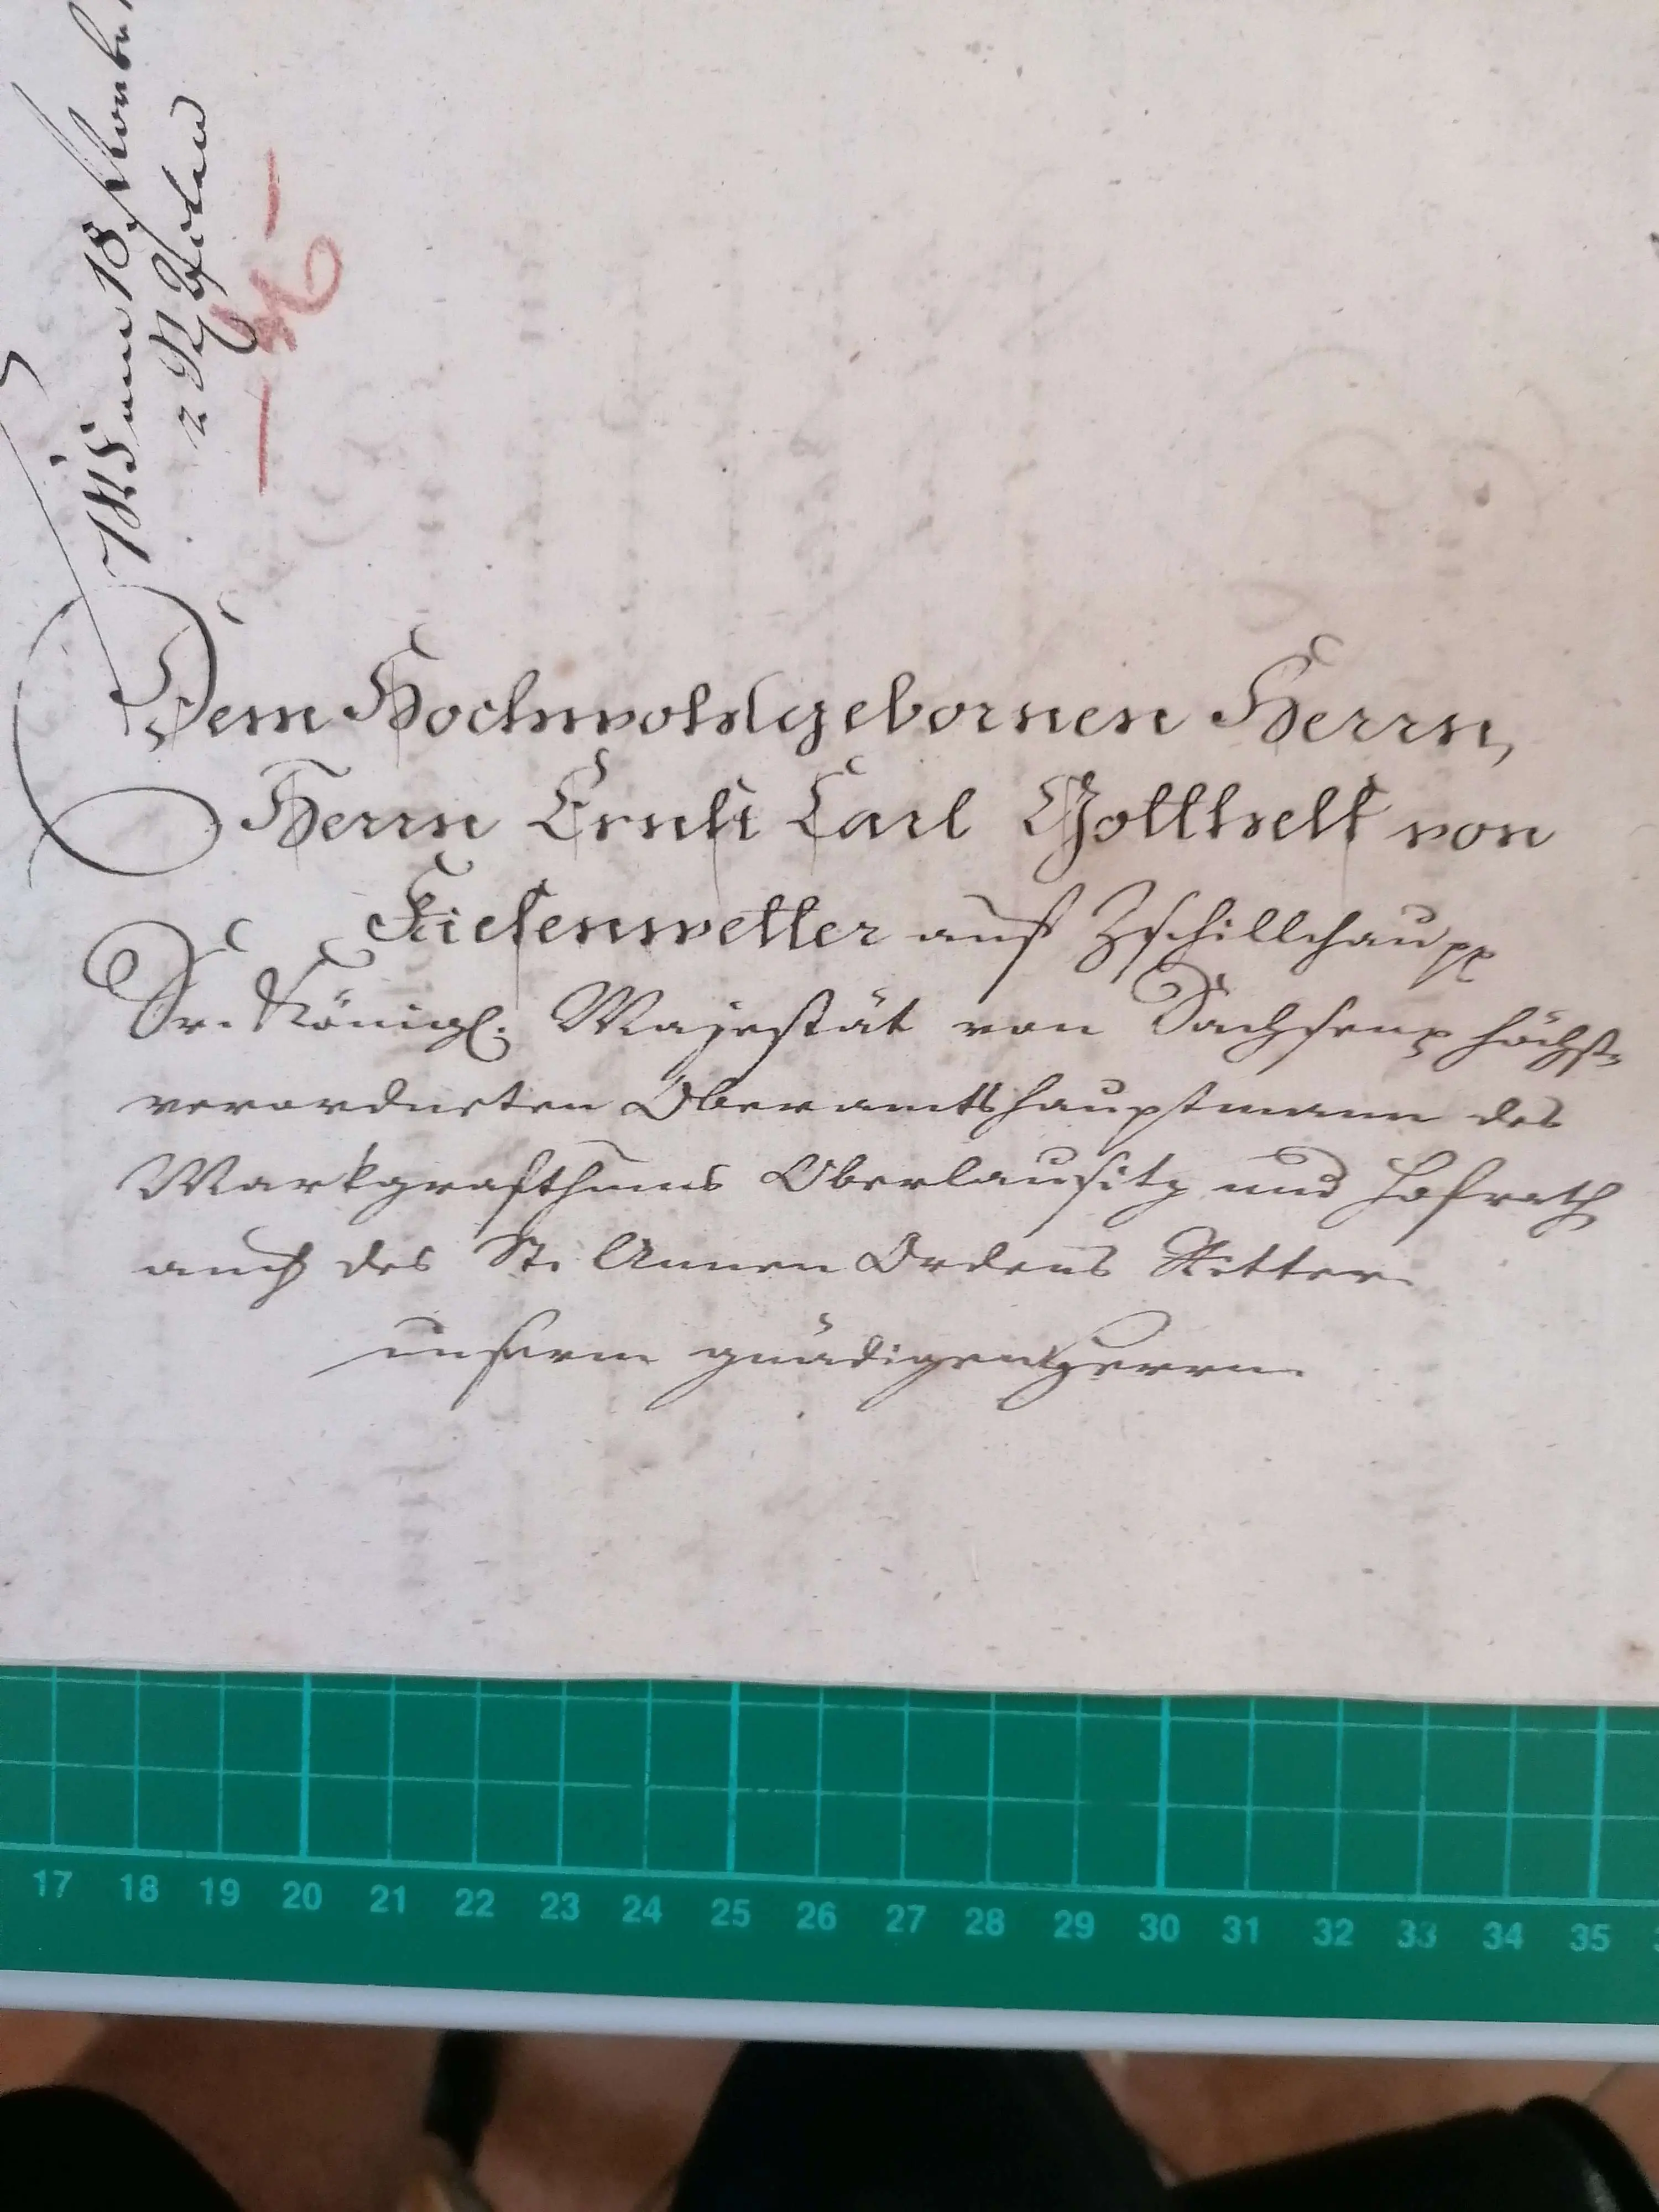 Dem Hochwohlgebornen Herrn,
Herrn Ernst Carl Gotthelf von
Kiesenwetter auf Zschillichau pp
Sr. Königl. Majestät von Sachsen p höchst-
verordneten Oberamtshauptmann des
Markgrafthums Oberlausitz und Hofrath
auch des St. Annen Ordens Ritter
unserm gnädigen Herrn
17 18 19 20 21 22 23 24 25 26 27 28 29 30 31 32 33 34 35